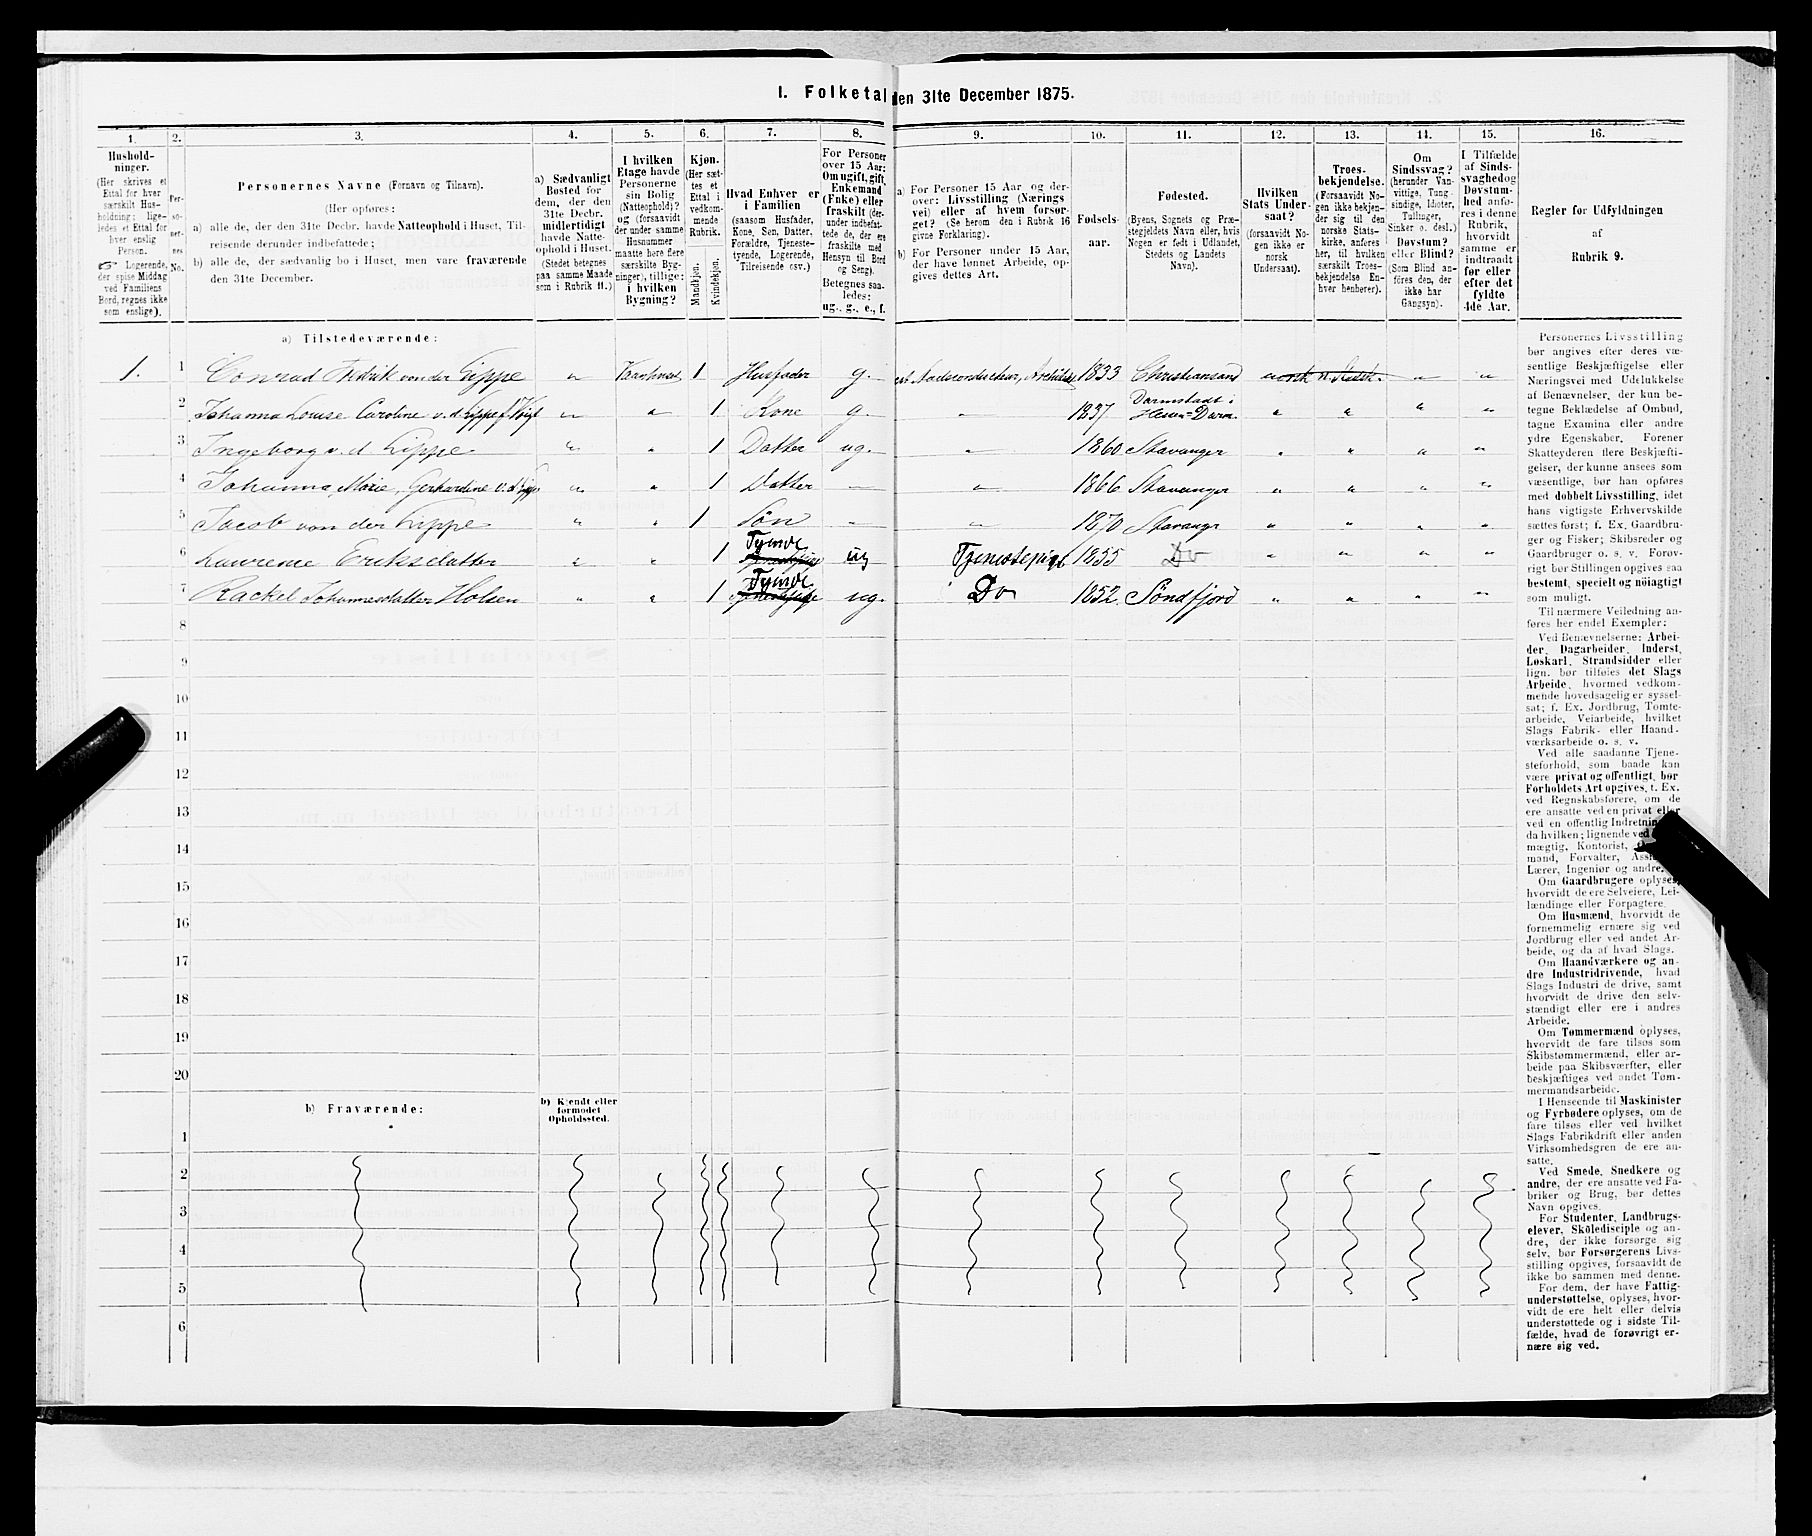 1. Folketal den 31te December 1875.
1. 2. 3. 4. 5. 6. 7. 8. 9. 10. 11. 12. 13. 14. 15. 16.
Husholdninger. (Her skrives et Ettal for hver særskilt Husholdning; ligeledes et Ettal for hver enslig Person. Logerende, der spise Middag ved Familiens Bord, regnes ikke som enslige).
Personernes No.
Personernes Navne (Fornavn og Tilnavn).
(Her opføres:
a) alle de, der den 31te Decbr. havde Natteophold i Huset, Tilreisende derunder indbefattede;
b) alle de, der sædvanlig bo i Huset, men vare fraværende den 31te December.
a) Sædvanligt Bosted for dem, der den 31te Decbr. midlertidigt havde Natteophold i Huset. (Stedet betegnes paa samme Maade som i Rubrik 11.)
I hvilken Etage havde Personerne sin Bolig (Natteophold)? og (forsaavidt der under samme Husnummer maatte høre flere særskilte Bygninger), tillige: i hvilken Bygning?
Kjøn. (Her sættes et Ettal i vedkommende Rubrik.
Mandkjøn. Kvindekjøn.
Hvad Enhver er i Familien (saasom Husfader, Kone, Søn, Datter, Forældre, Tjenestetyende, Logerende, Tilreisende osv.)
For Personer over 15 Aar: Om ugift, gift, Enkemand (Enke) eller fraskilt (derunder indbefattede de, der ere fraskilte med Hensyn til Bord og Seng). Betegnes saaledes: ug., g., e., f.
a) For Personer 15 Aar og derover: Livsstilling (Næringsvei) eller af hvem forsørget? (Se herom den i Rubrik 16 givne Forklaring).
b) For Personer under 15 Aar, der have lønnet Arbeide, opgives dettes Art.
Fødselsaar.
Fødested. (Byens, Sognets og Præstegjeldets Navn eller, hvis Nogen er født i Udlandet, Stedets og Landets Navn).
Hvilken Stats Undersaat? (forsaavidt Nogen ikke er norsk Undersaat).
Troesbekjendelse. (Forsaavidt Nogen ikke bekjender sig til den norske Statskirke, anføres her, til hvilken særskilt Troesbekjendelse Enhver henhører).
Om Sindssvag? (herunder Vanvittige, Tungsindige, Idioter, Tullinger, Sinker o. desl.) Døvstum? eller Blind? (Som Blind anføres den, der ikke har Gangsyn).
I Tilfælde af Sindssvaghed og Døvstumhed anføres i denne Rubrik, hvorvidt samme er indtraadt før eller efter det fyldte 4de Aar.
Regler for Udfyldningen af Rubrik 9.
a) Tilstedeværende:
1. 1 Conrad Fredrik von der Lippe " Vaarhuset 1 Husfader g. Stadsconducteur, Architekt 1833 Christiansand norsk n. Statsk. " "
2 Johanna Louise Caroline v. d. Lippe f. Voigt " " 1 Kone g " 1837 Darmstadt i Hessen=Darm. " " " "
3 Ingeborg v. d Lippe " " 1 Datter ug. " 1860 Stavanger " " " "
4 Johanna, Marie, Gerhardine v. d. Lippe " " 1 Datter – " 1866 Stavanger " " " "
5 Jacob von der Lippe " " 1 Søn " " 1870 Stavanger " " " "
6 Laurence Eriksdatter " " 1 Tyende ug Tjenestepige 1855 Do " " " "
7 Rackel Johannesdatter Holsen " " 1 Tyende ug. Do 1852 Søndfjord " " " "
8
9
10
11
12
13
14
15
16
17
18
19
20
b) Fraværende:
b) Kjendt eller formodet Opholdssted.
1
2
3
4
5
6
Personernes Livsstilling
bør angives efter deres væ-
sentlige Beskjæftigelse eller
Næringsvei med Udelukkelse
af Benævnelser, der kun be-
tegne Beklædelse af Ombud,
tagne Examina eller andre
ydre Egenskaber. Forener
Skatteyderen flere Beskjæfti-
gelser, der kunne ansees som
væsentlige, bør han opføres
med dobbelt Livsstilling, idet
hans vigtigste Erhvervskilde
sættes først; f. Ex. Gaardbru-
ger og Fisker; Skibsreder og
Gaardbruger o. s. v. Forøv-
rigt bør Stillingen opgives saa
bestemt, specielt og nøiagtigt
som muligt.
Til nærmere Veiledning an-
føres her endel Exempler:
Ved Benævnelserne: Arbei-
der, Dagarbeider, Inderst,
Løskarl, Strandsidder eller
lign. bør tilføies det Slags
Arbeide, hvormed vedkom-
mende hovedsagelig er syssel-
sat; f. Ex. Jordbrug, Tomte-
arbeide, Veiarbeide, hvilket
Slags Fabrik- eller Haand-
værksarbeide o. s. v.
Ved alle saadanne Tjene-
steforhold, som baade kan
være privat og offentligt, bør
Forholdets Art opgives, f. Ex.
ved Regnskabsførere, om de
ere ansatte ved en privat eller
ved en offentlig Indretning
da hvilken; lignende ved
mægtig, Kontorist,
mand, Forvalter,
Lærer, Ingeniør og andre.
Om Gaardbrugere oplyses,
hvorvidt de ere Selveiere, Lei-
lændinge eller Forpagtere.
Om Husmænd, hvorvidt de
fornemmelig ernære sig ved
Jordbrug eller ved andet Ar-
beide, og da af hvad Slags.
Om Haandværkere og an-
dre Industridrivende, hvad
Slags Industri de drive, samt
hvorvidt de drive den selv-
stændigt eller ere i andres
Arbeide.
Om Tømmermænd oplyses,
hvorvidt de fare tilsøs som
Skibstømmermænd, eller ar-
beide paa Skibsværfter, eller
beskjæftiges ved andet Tøm-
mermandsarbeide.
I Henseende til Maskinister
og Fyrbødere oplyses, om de
fare tilsøs eller ved hvilket
Slags Fabrikdrift eller anden
Virksomhedsgren de ere an-
satte.
Ved Smede, Snedkere og
andre, der ere ansatte ved Fa-
briker og Brug, bør dettes
Navn opgives.
For Studenter, Landbrugs-
elever, Skoledisciple og an-
dre, der ikke forsørge sig
selv, bør Forsørgerens Livs-
stilling opgives, forsaavidt de
ikke bo sammen med denne.
For dem, der have Fattig-
understøttelse, oplyses, hvor-
vidt de ere helt eller delvis
understøttede og i sidste Til-
fælde, hvad de forøvrigt er-
nære sig ved.